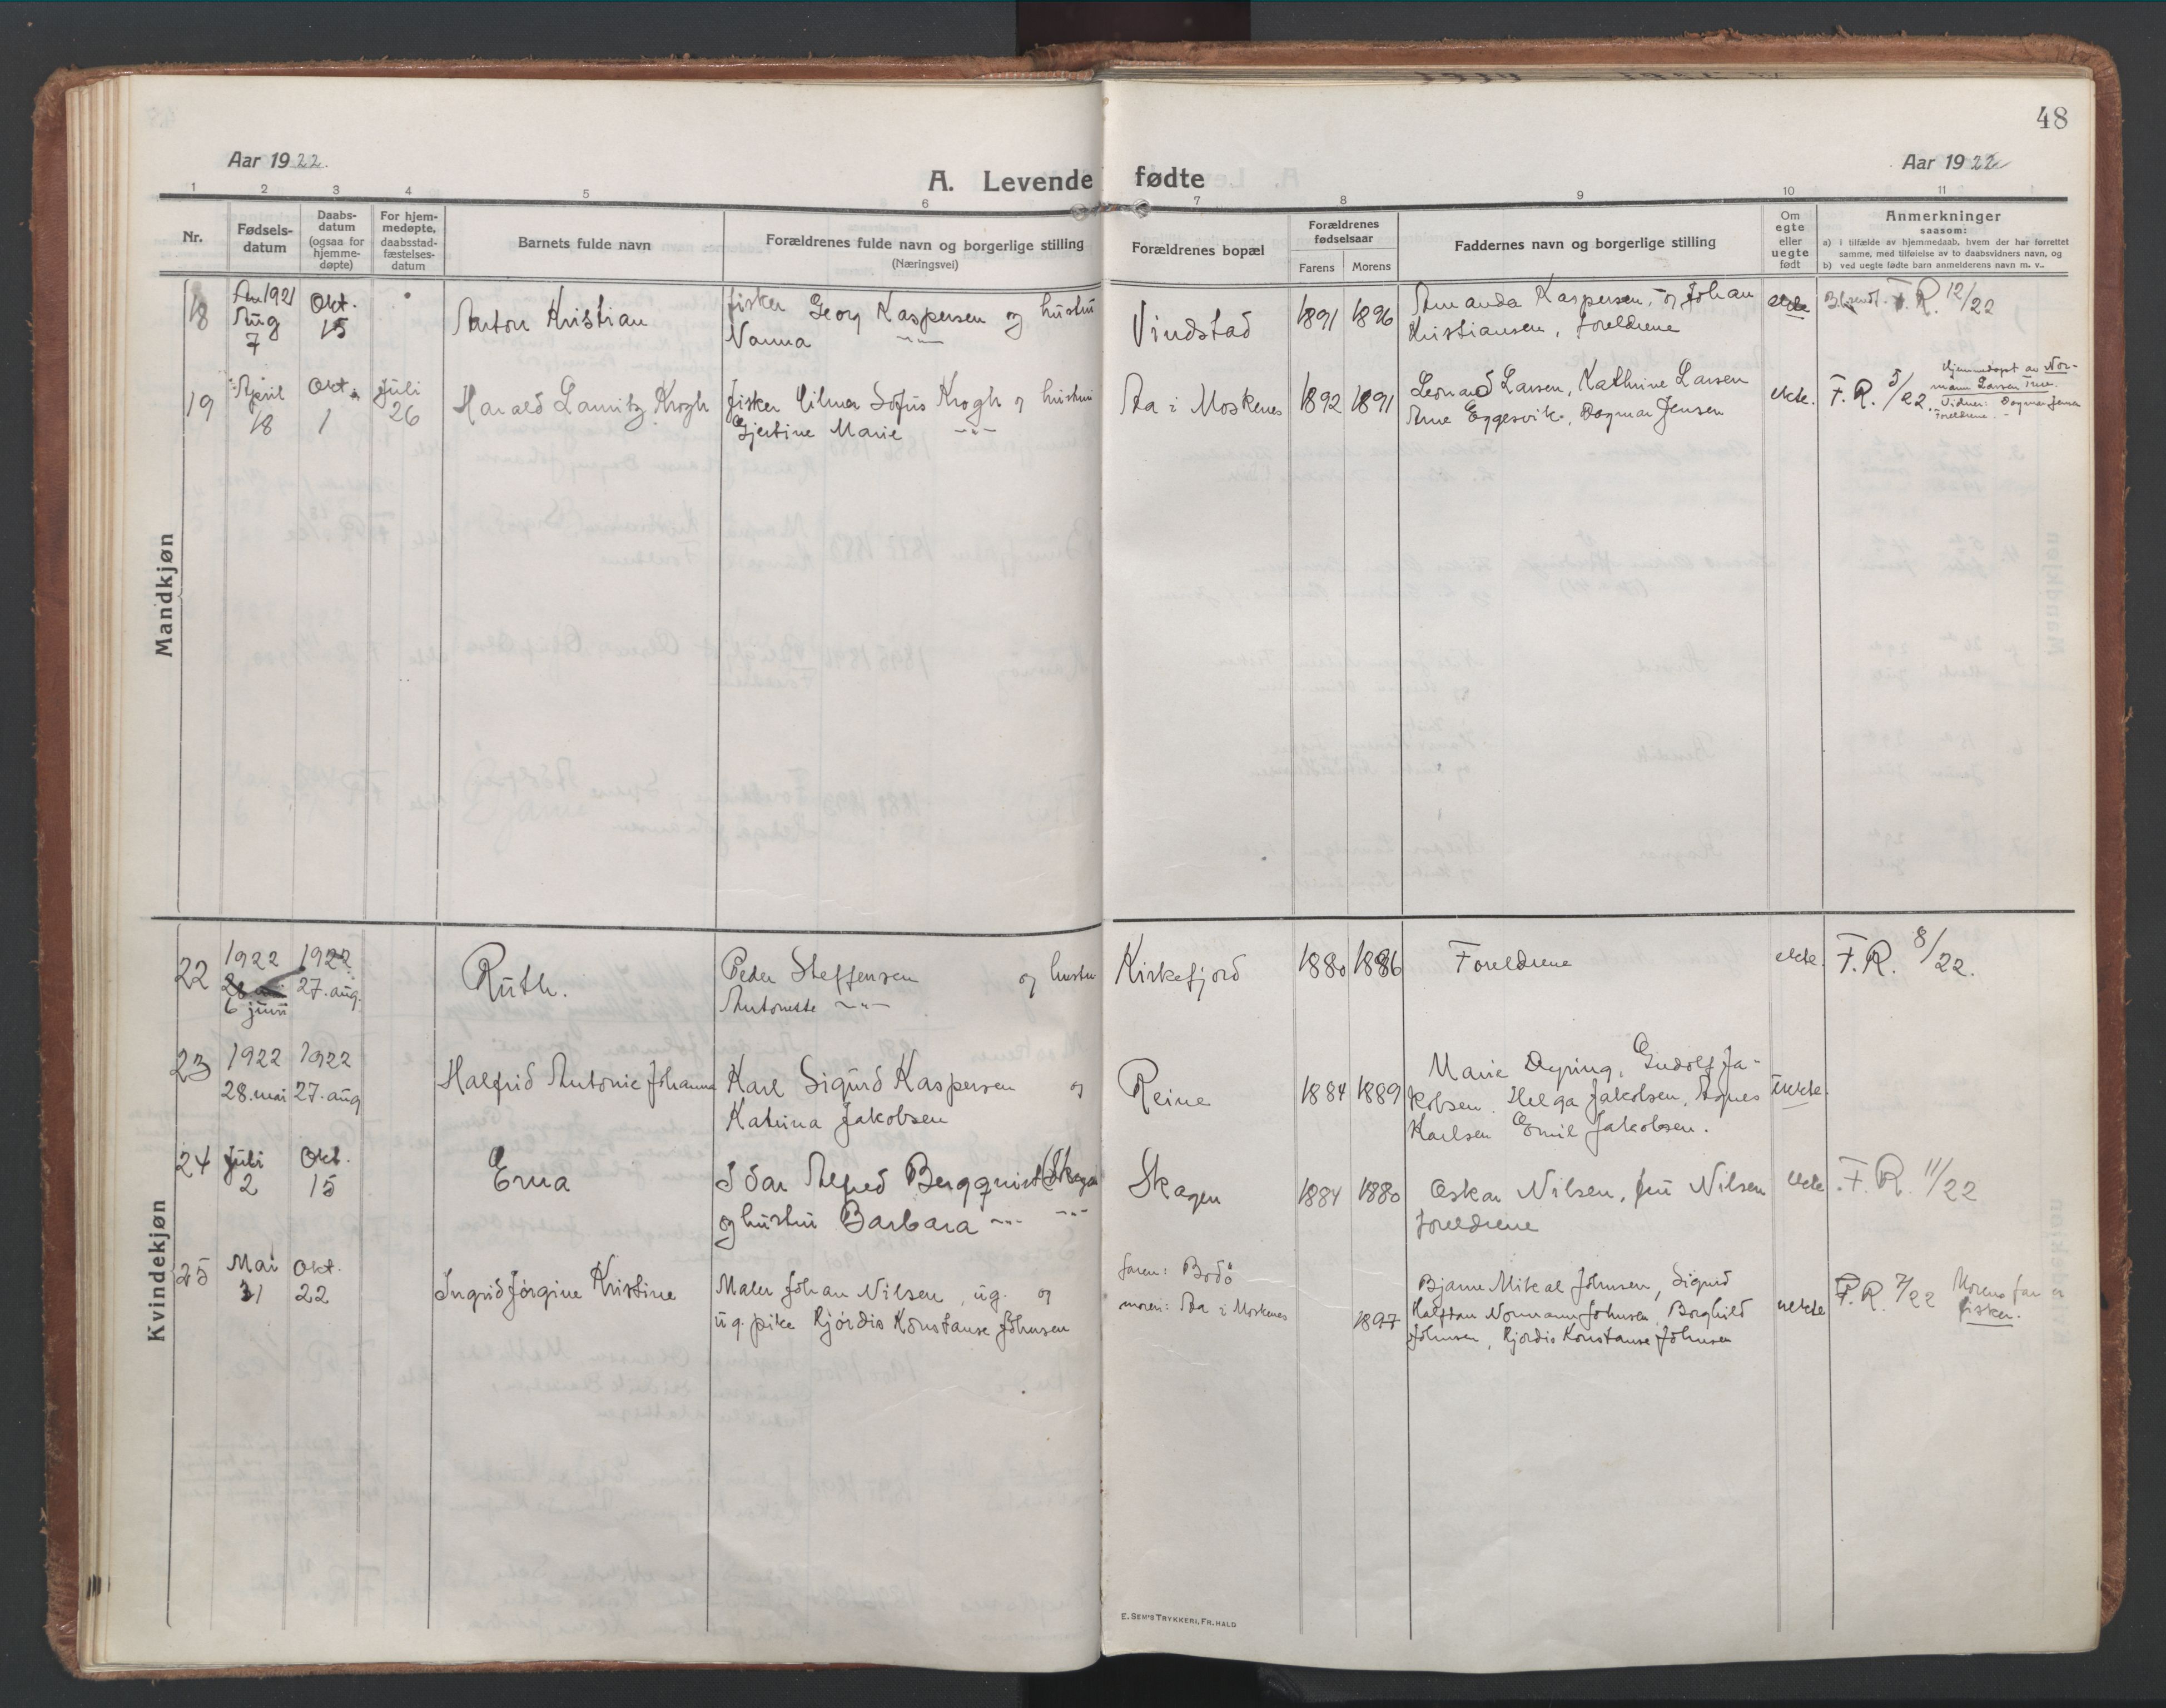 48
Aar 1922.
Aar 1922
A. Levende fødte
1 2 3 4 5 6 7 8 9 10 11
Nr.
Fødsels-
datum
Daabs-
datum
(ogsaa for
hjemme-
døpte)
For hjem-
medøpte,
daabsstad-
fæstelses-
datum
Barnets fulde navn
Forældrenes fulde navn og borgerlige stilling
(Næringsvei)
Forældrenes bopæl
Forældrenes
fødselsaar
Farens Morens
Faddernes navn og borgerlige stilling
Om
egte
eller
uegte
født
Anmerkninger
saasom:
a) i tilfælde av hjemmedaab, hvem der har forrettet
samme, med tilføielse av to daabsvidners navn, og
b) ved uegte fødte barn anmelderens navn m. v.
Mandkjøn
18
1921
Aug
7
Okt.
15
Anton Kristian
fisker Georg Kaspersen og hustru
Nanna -"-
Vindstad
1891 1896
Amanda Kaspersen, og Johan
Kristiansen, foreldrene
ekte
F.R. 12/22
19
April
18
Okt.
1
Juli
26
Harald Lauritz Krogh
fisker Hilmar Sofus Krogh og hustru
Gjertine Marie -"-
Aa i Moskenes
1892 1891
Leonard Larsen, Kathrine Larsen
Arne Eggesvik, Dagmar Jensen
ekte.
F.R. 5/22.
Hjemmedøpt av Nor-
mann Larsen
Vidner: Dagmar Jensen
Foreldrene.
Kvindekjøn
22
1922
6 juni
1922
27. aug.
Ruth.
Peder Steffensen og hustru
Antonette -"-
Kirkefjord
1880 1886
Foreldrene
ekte.
F.R. 8/22.
23
1922
28. mai
1922
27. aug
Halfrid Antonie Johanna
Karl Sigurd Kaspersen og
Katrina Jakobsen
Reine
1884 1889
Marie Dyring, Gudolf Ja-
kobsen, Helga Jakobsen, Agnes
Karlsen Emil Jakobsen.
uekte.
24
Juli
2
Okt.
15
Erna
Idar Alfred Bergquist (Skagen
og hustru Barbara -"- -"-
Skagen
1884 1880
Oskar Nilsen, Nilsen
foreldrene
ekte
F.R. 11/22
25
Mai
31
Okt.
22
Ingrid Jørgine Kristine
Maler Johan Nilsen, ug. og
ug. pike Hjørdis Konstanse Johnsen
faren: Bodö
moren: Aa i Moskenes
1897
Bjarne Mikal Johnsen, Sigurd
Halftan Normann Johnsen, Borghild
Johnsen, Hjørdis Konstanse Johnsen
uekte
F.R. 7/22
Morens far
fisker.
E. SEM'S TRYKKERI, FR. HALD